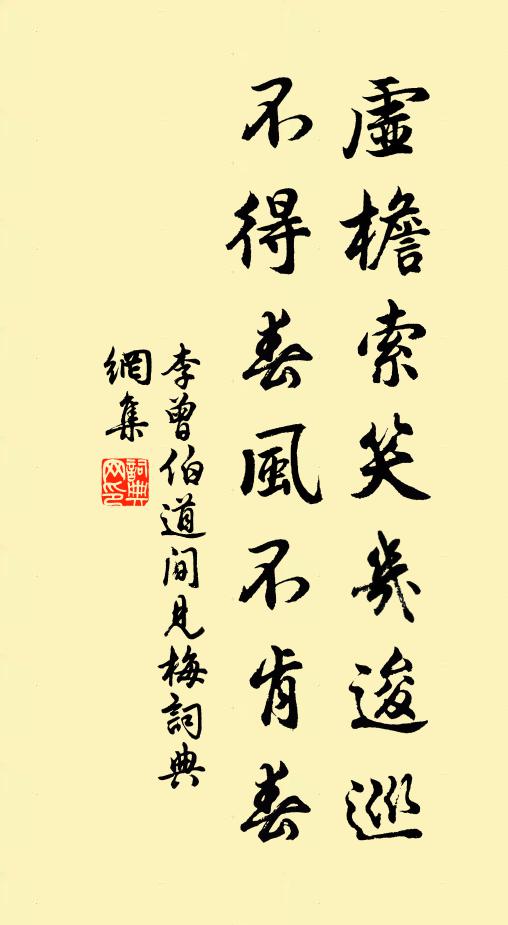 虛檐索笑幾逡巡
不得春風不肯春
李曾伯道間見梅詞典
網集
詞典
網印